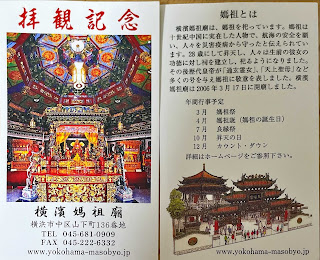 拝観記念
横濱媽祖廟
横浜市中区山下町136番地
TEL 045-681-0909
FAX 045-222-6332
www.yokohama-masobyo.jp
媽祖とは
横濱媽祖廟は、媽祖を祀っています。媽祖は
十世紀中国に実在した人物で、航海の安全を願
い、人々を災害疫病から守ったと伝えられてい
ます。28歳にして昇天し、人々は生前の彼女の
功徳に対し祠を建立し、祀るようになりました。
その後歴代皇帝が「通玄霊女」、「天上聖母」など
多くの号を与え媽祖に敬意を表しました。横濱
媽祖廟は2006年3月17日に開廟しました。
年間行事予定
3月 媽祖祭
4月 媽祖誕(媽祖の誕生日)
7月 良縁祭
10月 昇天の日
12月 カウント・ダウン
詳細はホームページをご参照下さい。
www.yokohama-masobyo.jp